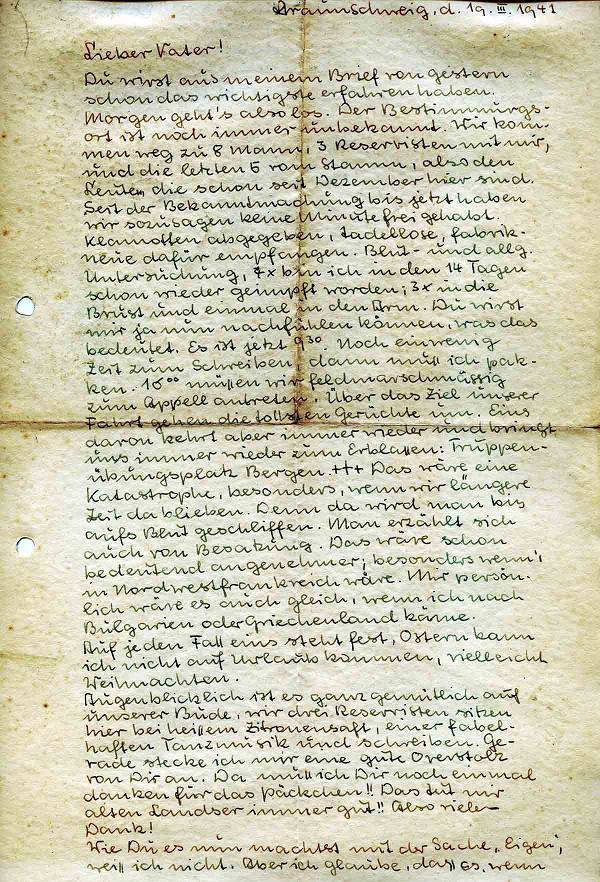 Braunschweig, d. 19. III. 1941
Lieber Vater!
Du wirst aus meinem Brief von gestern
schon das wichtigste erfahren haben.
Morgen geht's also los. Der Bestimmungs-
ort ist noch immer unbekannt. Wir kom-
men weg zu 8 Mann, 3 Reservisten mit mir,
und die letzten 5 vom Stamm, also den
Leuten die schon seit Dezember hier sind.
Seit der Bekanntmachung bis jetzt haben
wir sozusagen keine Minute frei gehabt.
Klamotten abgegeben, tadellose, fabrik-
neue dafür empfangen. Blut- und allg.
Untersuchung, 4x bin ich in den 14 Tagen
schon wieder geimpft worden; 3x in die
Brust und einmal in den Arm. Du wirst
mir ja nun nachfühlen können, was das
bedeutet. Es ist jetzt 9³⁰. Noch ein wenig
Zeit zum Schreiben, dann muß ich pak-
ken. 16⁰⁰ müßen wir feldmarschmässig
zum Appell antreten. Über das Ziel unserer
Fahrt gehen die tollsten Gerüchte um. Eins
davon kehrt aber immer wieder und bringt
uns immer wieder zum Erblaßen: Truppen-
übungsplatz Bergen. +++ Das wäre eine
Katastrophe, besonders, wenn wir längere
Zeit da blieben. Denn da wird man bis
aufs Blut geschliffen. Man erzählt sich
auch von Besatzung. Das wäre schon
bedeutend angenehmer, besonders wenn's
in Nordwestfrankreich wäre. Mir persön-
lich wäre es auch gleich, wenn ich nach
Bulgarien oder Griechenland käme.
Auf jeden Fall eins steht fest, Ostern kann
ich nicht auf Urlaub kommen, vielleicht
Weihnachten.
Augenblicklich ist es ganz gemütlich auf
unserer Bude, wir drei Reservisten sitzen
hier bei heißem Zitronensaft, einer fabel-
haften Tanzmusik und schreiben. Ge-
rade stecke ich mir eine gute Overstolz
von Dir an. Da muß ich Dir noch einmal
danken für das Päckchen!! Das tut mir
alten Landser immer gut!! Also vielen
Dank!
Wie Du es nun machst mit der Sache „Eigen",
weiß ich nicht. Aber ich glaube, daß es, wenn